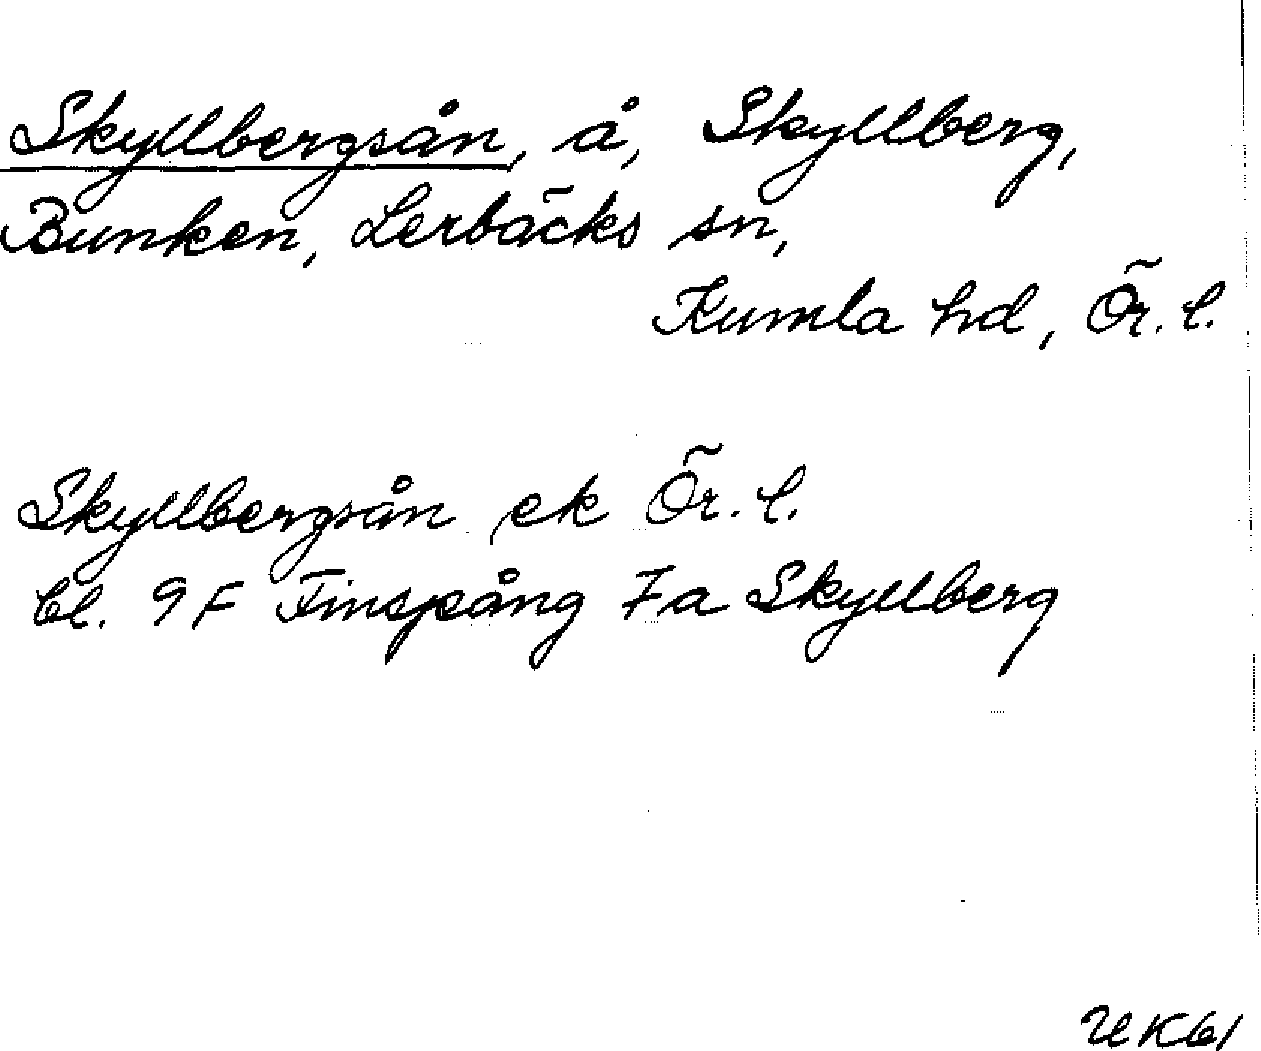 Skyllbergsån, å, Skyllberg,
Bunken, Lerbäcks sn,
Kumla hd, Ör. l.
Skyllbergsån ek Ör. l.
bl. 9F Finspång 7a Skyllberg
UK61